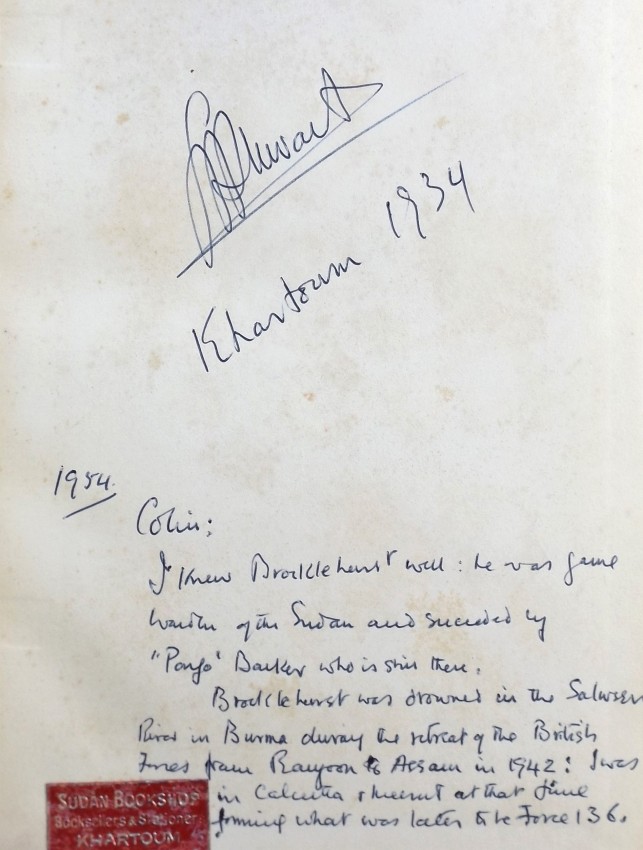 Stewart
Khartoum 1934
1954.
Colin:
I knew Brocklehurst well: he was game
warden of the Sudan and succeeded by
"Pongo" Barker who is still there.
Brocklehurst was drowned in the Salween
River in Burma during the retreat of the British
Forces from Rangoon to Assam in 1942: I was
in Calcutta & Meerut at that time
forming what was later to be Force 136.
SUDAN BOOKSHOP
Booksellers & Stationers
KHARTOUM